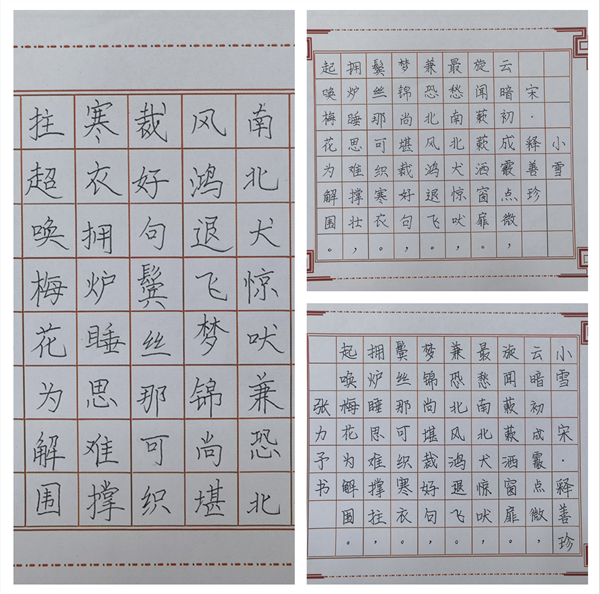 南北犬惊吠兼恐北
风鸿退飞梦锦尚堪
裁好句鬓丝那可织
寒衣拥炉睡思难撑
拄超唤梅花为解围
小雪
宋·释善珍
云暗初成霰点微，
旋闻蔌蔌洒窗扉。
最愁南北犬惊吠，
兼恐北风鸿退飞。
梦锦尚堪裁好句，
鬓丝那可织寒衣。
拥炉睡思难撑壮，
起唤梅花为解围。
小雪 宋·释善珍
云暗初成霰点微，
旋闻蔌蔌洒窗扉。
最愁南北犬惊吠，
兼恐北风鸿退飞。
梦锦尚堪裁好句，
鬓丝那可织寒衣。
拥炉睡思难撑拄，
起唤梅花为解围。
张力予书